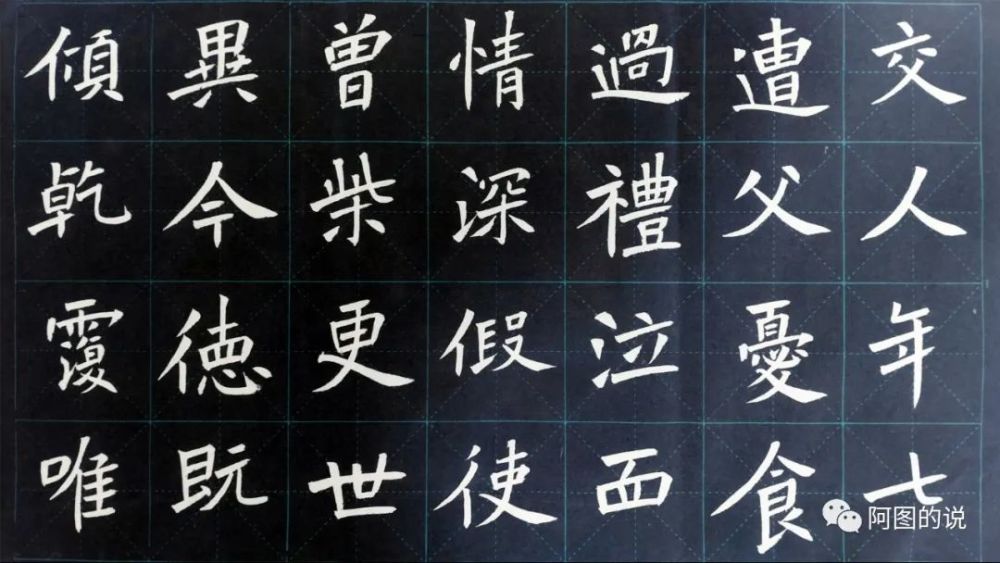 交人年七
遭父憂食
過禮泣面
情深假使
曾柴更世
異今徳既
傾乾覆唯
阿图的说